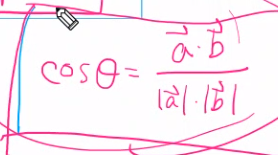 cosθ = (a⃗·b⃗)/(|a⃗|·|b⃗|)